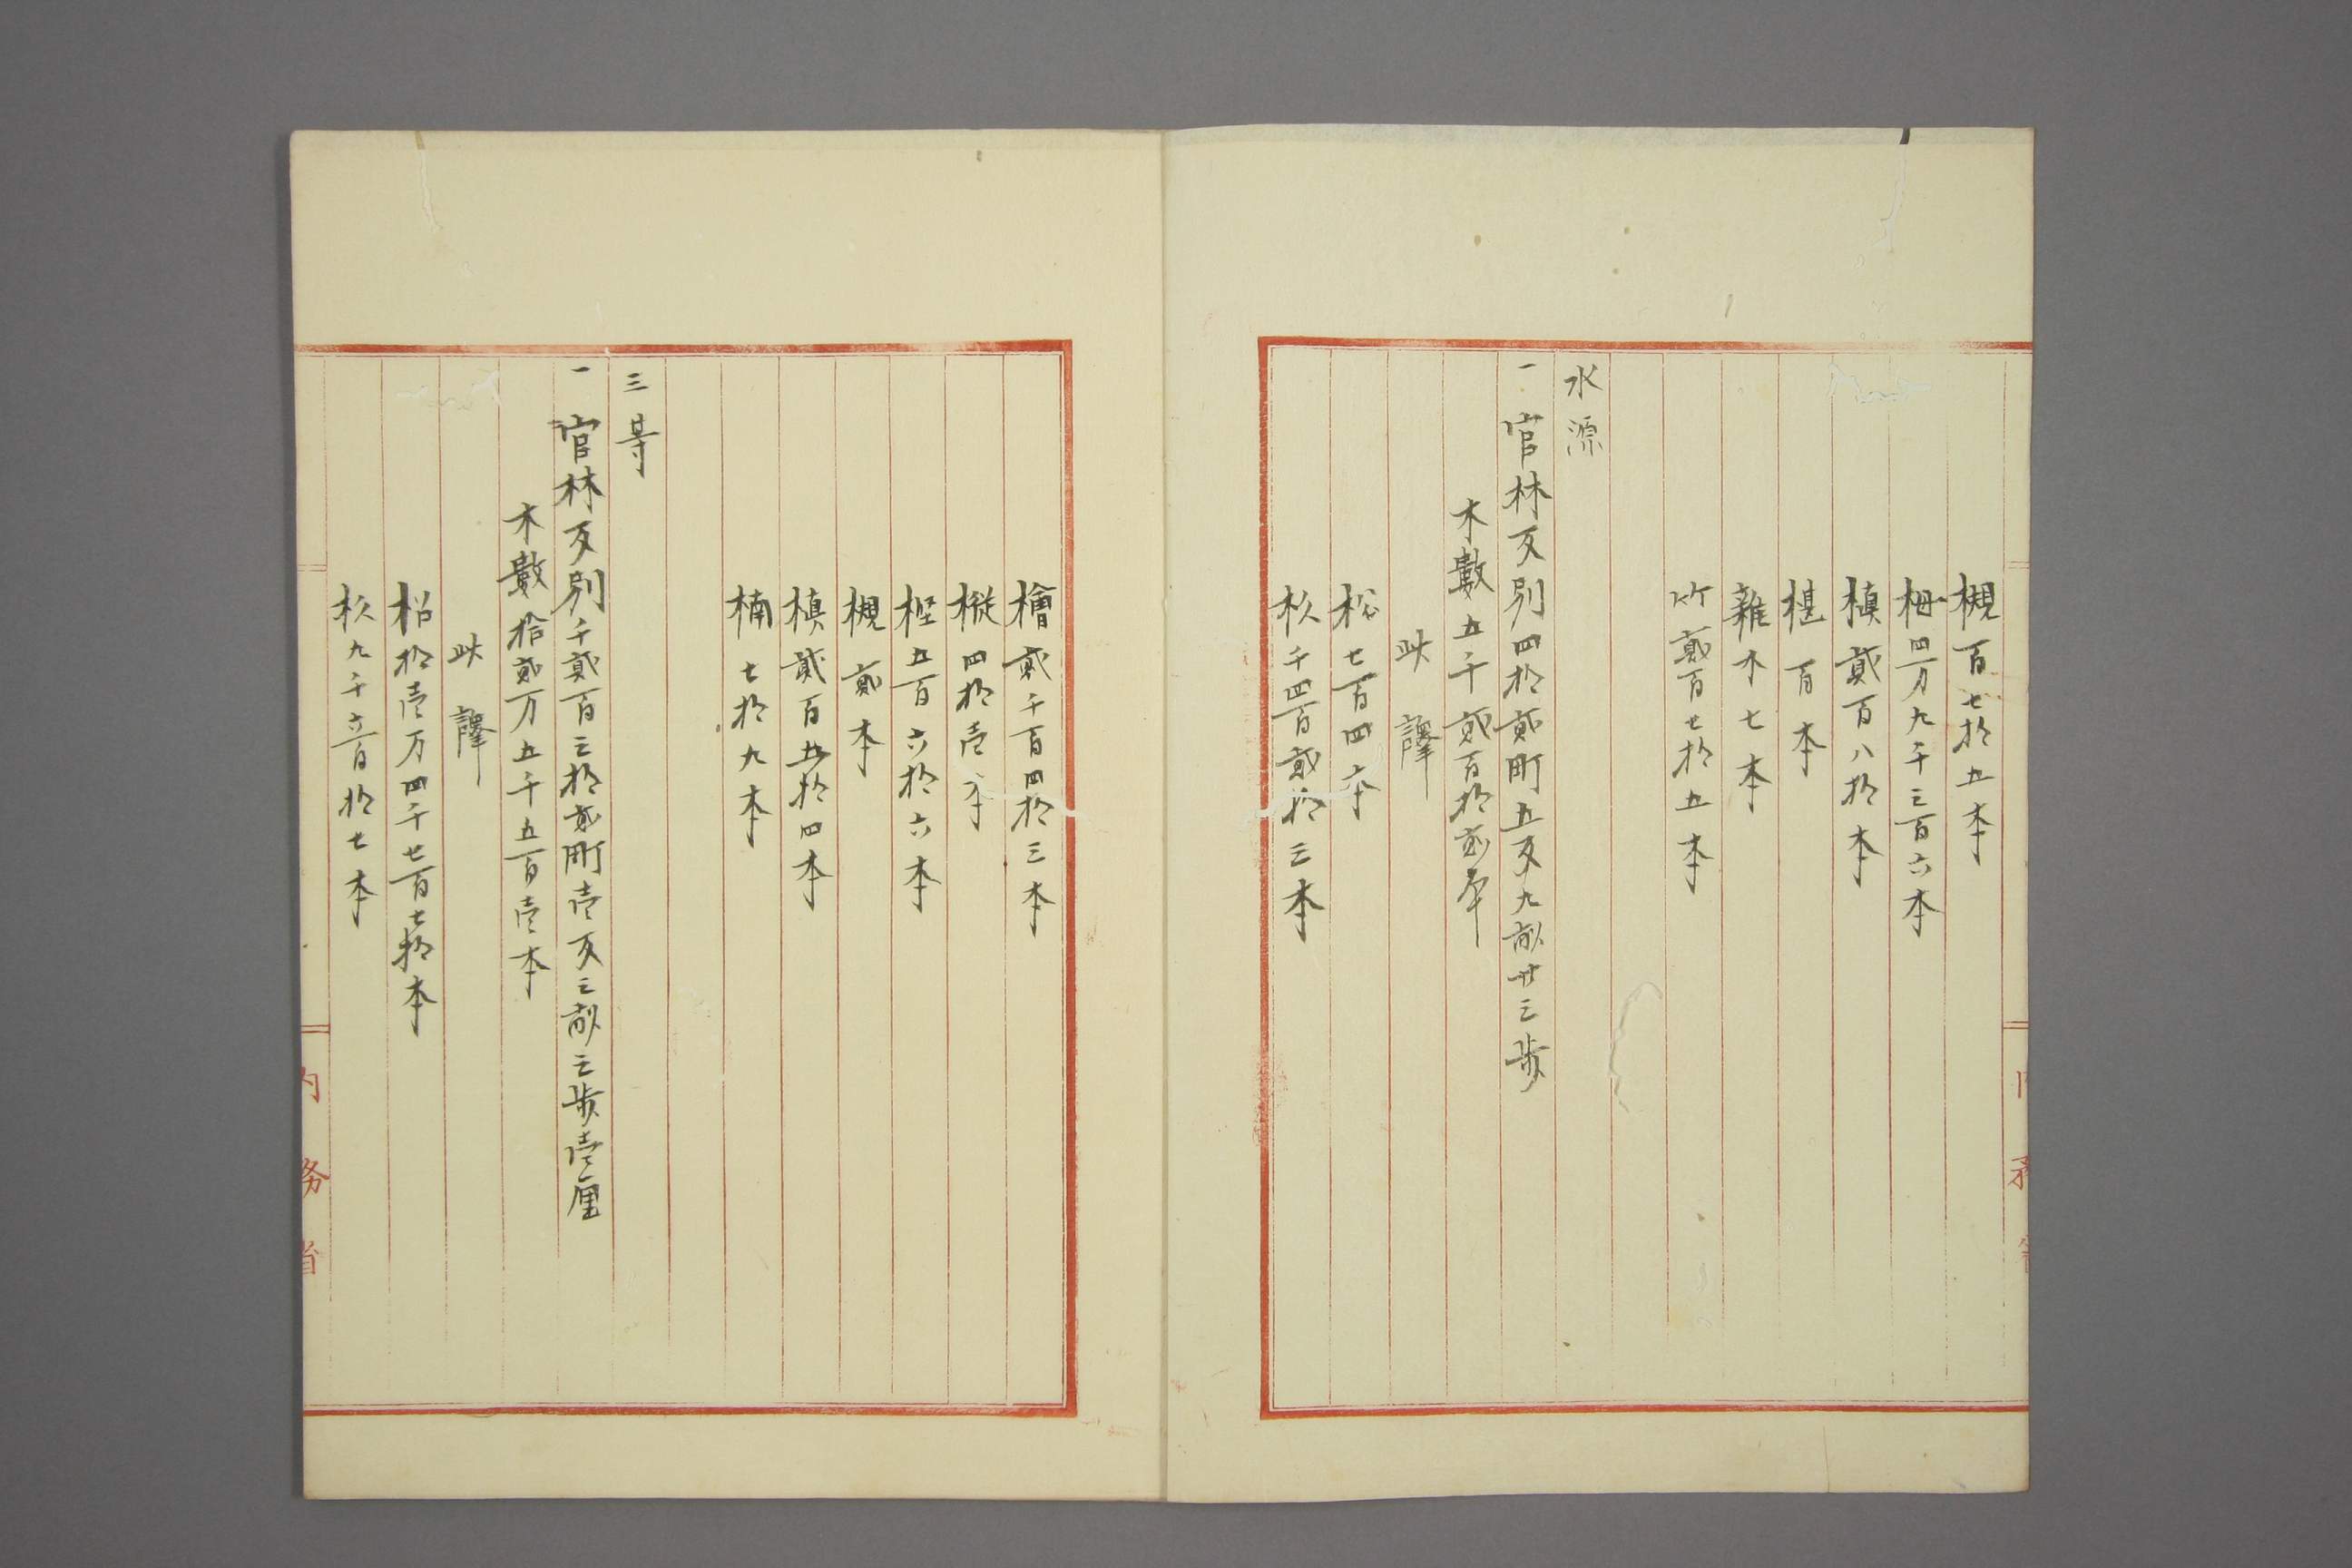 槻百七拾五本
栂四万九千三百六本
槙貳百八拾本
椹百本
雜木七本
竹貳百七拾五本
水源
一官林反別四拾貳町五反九畝廿三歩
木數五千貳百拾貳本
此譯
松七百四本
杉千四百貳拾三本
檜貳千百四拾三本
樅四拾壱本
樫五百六拾六本
槻貳本
槙貳百五拾四本
楠七拾九本
三等
一官林反別千貳百三拾貳町壱反三畝三歩壱厘
木數拾貳万五千五百壱本
此譯
松拾壱万四千七百七拾本
杉九千六百拾七本
内務省